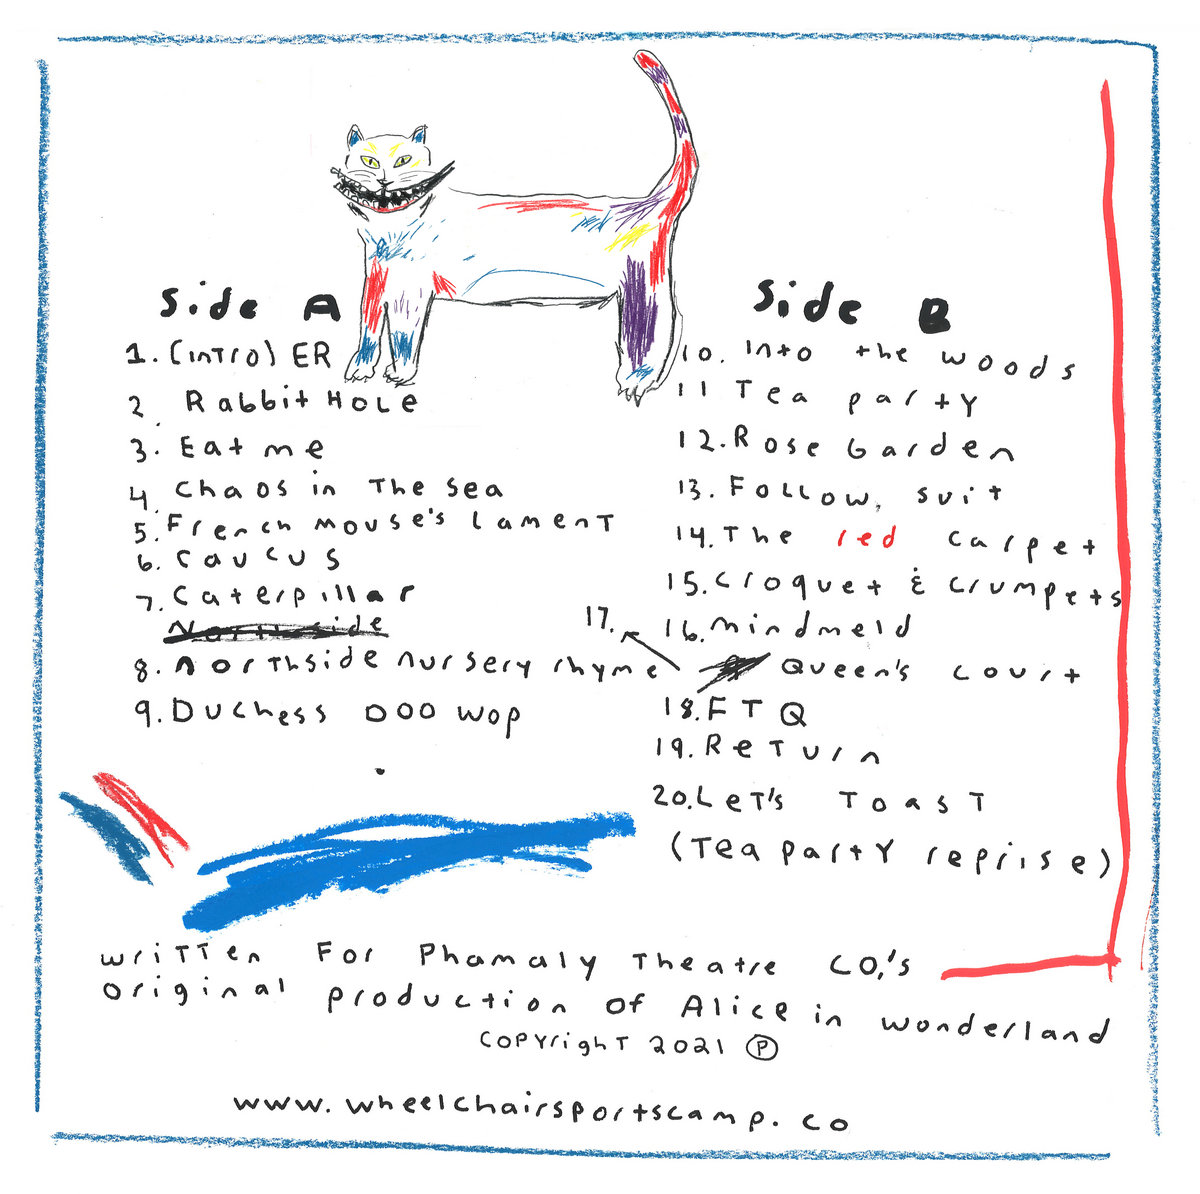 Side A
1. (inTro) ER
2. Rabbit Hole
3. Eat me
4. Chaos in The Sea
5. French mouse's Lament
6. Caucus
7. Caterpillar
Northside
8. Northside nursery rhyme
9. Duchess Doo Wop
Side B
10. Into the woods
11 Tea party
12. Rose Garden
13. Follow, suit
14. The red carpet
15. Croquet & Crumpets
16. mindmeld
17. Queen's Court
18. FTQ
19. Return
20. Let's Toast
(Tea party reprise)
written For Phamaly Theatre CO,'s
original production of Alice in wonderland
Copyright 2021 Ⓟ
www.wheelchairsportscamp.co